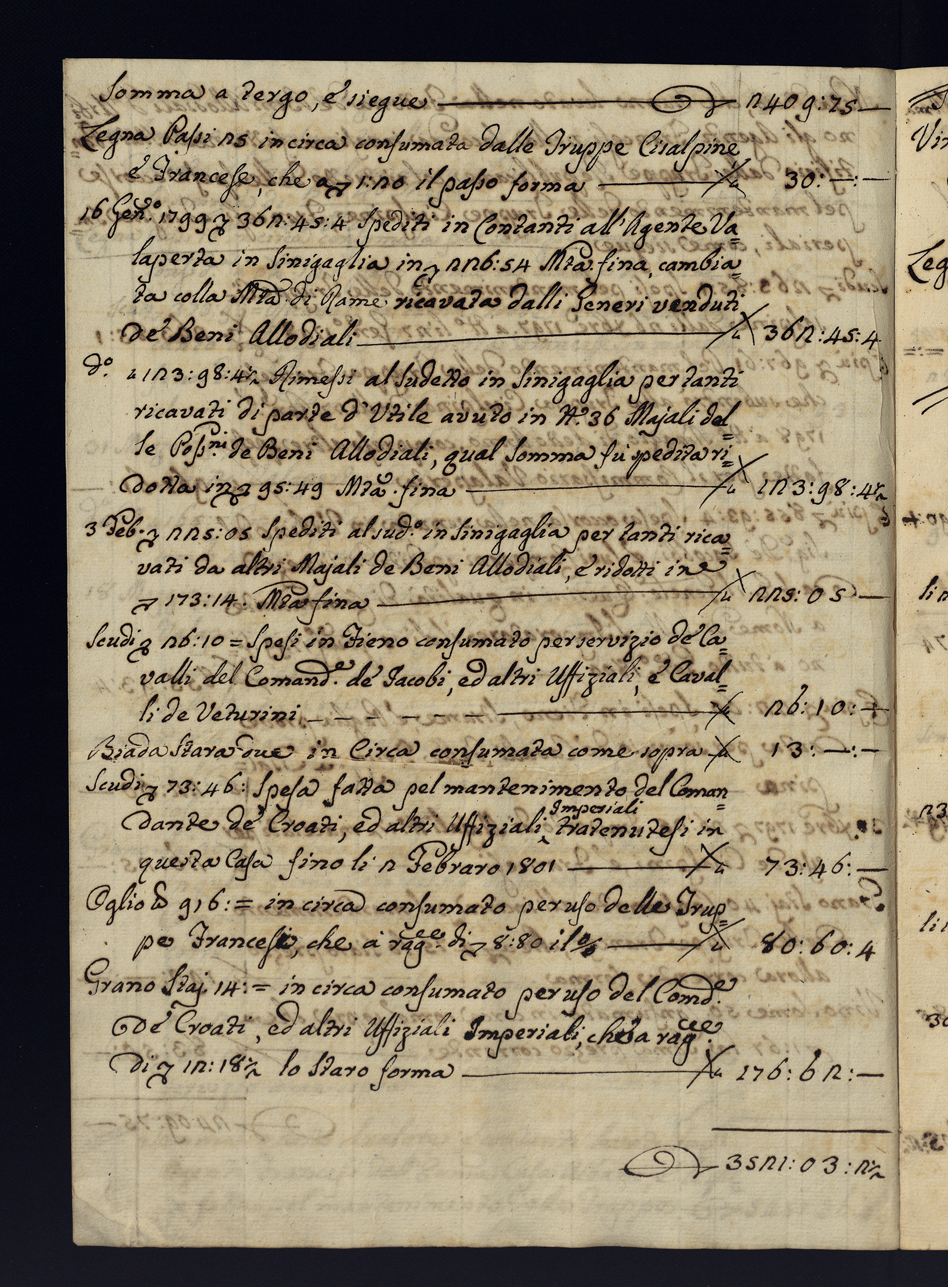 Somma a tergo, è siegue 2409:75—
Legna Passi 25 in circa consumata dalle Truppe Cisalpine
è Francese, che a 1:20 il passo forma 30:—:—
16 Gen.º 1799 362:45:4 Spediti in Contanti all'Agente Va=
laperta in Sinigaglia in 226:54 Mta. fina, cambia=
ta colla Mta. di Rame ricavata dalli Generi venduti
de' Beni Allodiali 362:45:4
dº. 123:98:4½ Rimessi al sudetto in Sinigaglia per tanti
ricavati di parte d'Utile avuto in Nº. 36 Majali del=
le Possni. de Beni Allodiali, qual somma fù spedita ri=
dotta in 95:49 Mta. fina 123:98:4½
3 Feb. 225:05 Spediti al sudº. in Sinigaglia per tanti rica=
vati da altri Majali de Beni Allodiali, è ridotti in
173:14. Mta fina 225:05—
Scudi 26:10 = Spesi in Fieno consumato per servizio de' Ca=
valli del Comande. de' Jacobi, ed altri Uffiziali, è Caval=
li de Veturini 26:10:—
Biada Stara due in Circa consumata come sopra 13:—:—
Scudi 73:46: Spesa fatta pel mantenimento del Coman=
dante de' Croati, ed altri Uffiziali Imperiali tratenutesi in
questa Casa fino li 2 Febraro 1801 73:46:—
Oglio 916:= in circa consumato per uso delle Trup=
pe Francesi, che à rage. di 8:80 il % 80:60:4
Grano Staj. 14:= in circa consumato per uso del Comde.
de' Croati, ed altri Uffiziali Imperiali, che a rage.
di 12:18½ lo staro forma 176:62:—
3521:03:2½